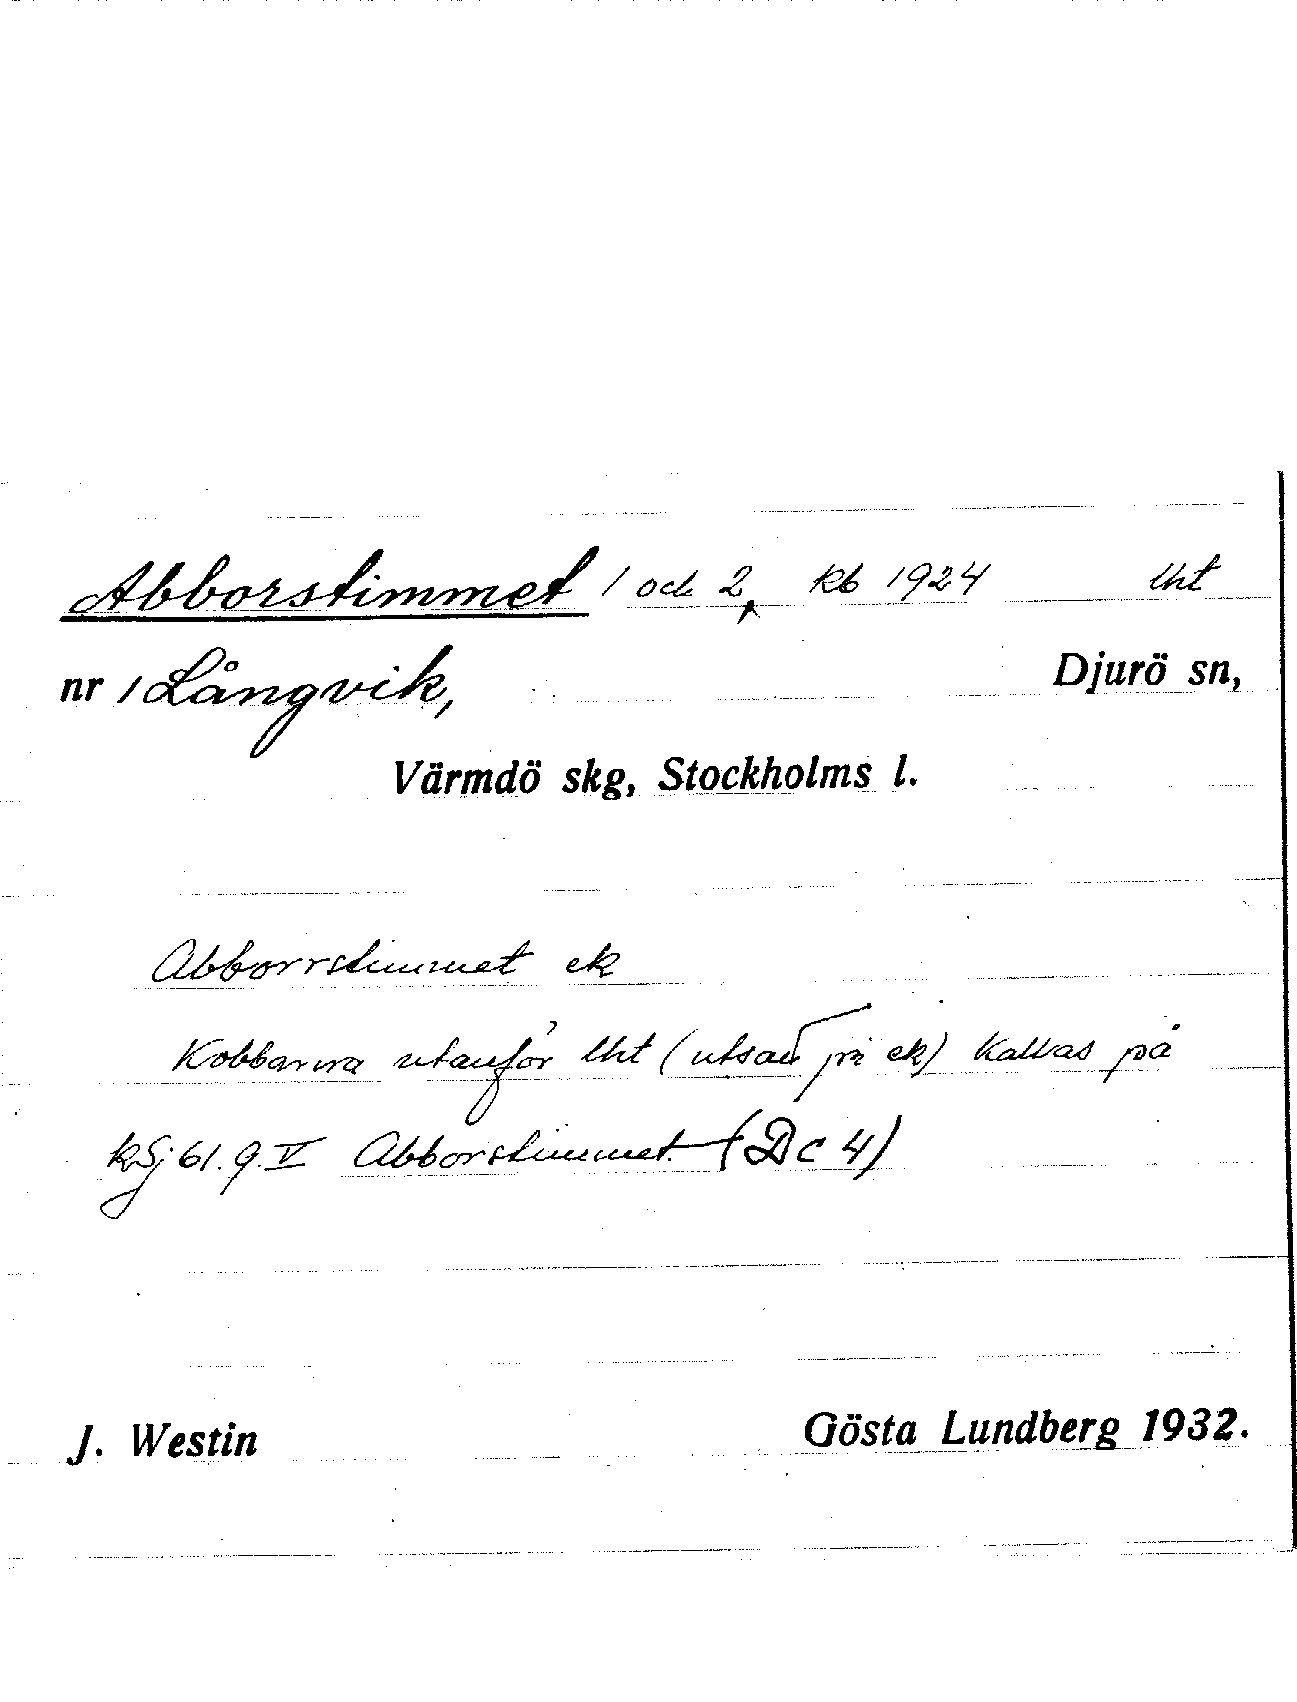 Abborstimmet 1 och 2, kb 1924 lht
nr 1 Långvik, Djurö sn,
Värmdö skg, Stockholms l.
Abborrstimmet ek
Kobbarna utanför lht (utsatt på ek) kallas på
kSj 61. 9. V Abborstimmet. (Dc 4)
J. Westin Gösta Lundberg 1932.